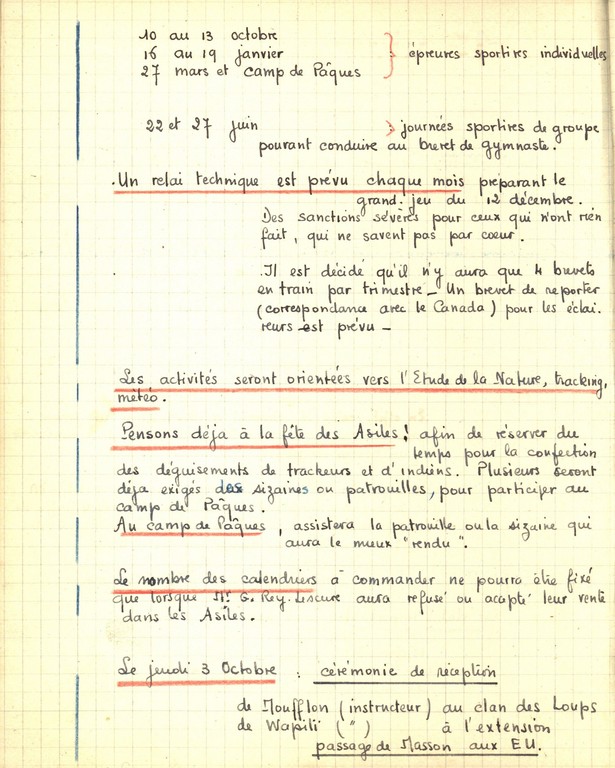 10 au 13 octobre
16 au 19 janvier } épreuves sportives individuelles
27 mars et camp de Pâques
22 et 27 juin } journées sportives de groupe
pouvant conduire au brevet de gymnaste.
. Un relai technique est prévu chaque mois préparant le
grand jeu du 12 décembre.
Des sanctions sévères pour ceux qui n'ont rien
fait, qui ne savent pas par cœur.
. Il est décidé qu'il n'y aura que 4 brevets
en train par trimestre - Un brevet de reporter
(correspondance avec le Canada) pour les éclai.
reurs est prévu -
Les activités seront orientées vers l'Etude de la Nature, tracking,
météo.
Pensons déja à la fête des Asiles! afin de réserver du
temps pour la confection
des déguisements de trackeurs et d'indiens. Plusieurs seront
déja exigés des sizaines ou patrouilles, pour participer au
camp de Pâques.
Au camp de Pâques, assistera la patrouille ou la sizaine qui
aura le mieux "rendu".
Le nombre des calendriers à commander ne pourra être fixé
que lorsque Mr G. Rey-Lescure aura refusé ou accepté leur vente
dans les Asiles.
Le jeudi 3 Octobre : cérémonie de réception
de Moufflon (instructeur) au clan des Loups
de Wapiti (") à l'extension
passage de Masson aux EU.